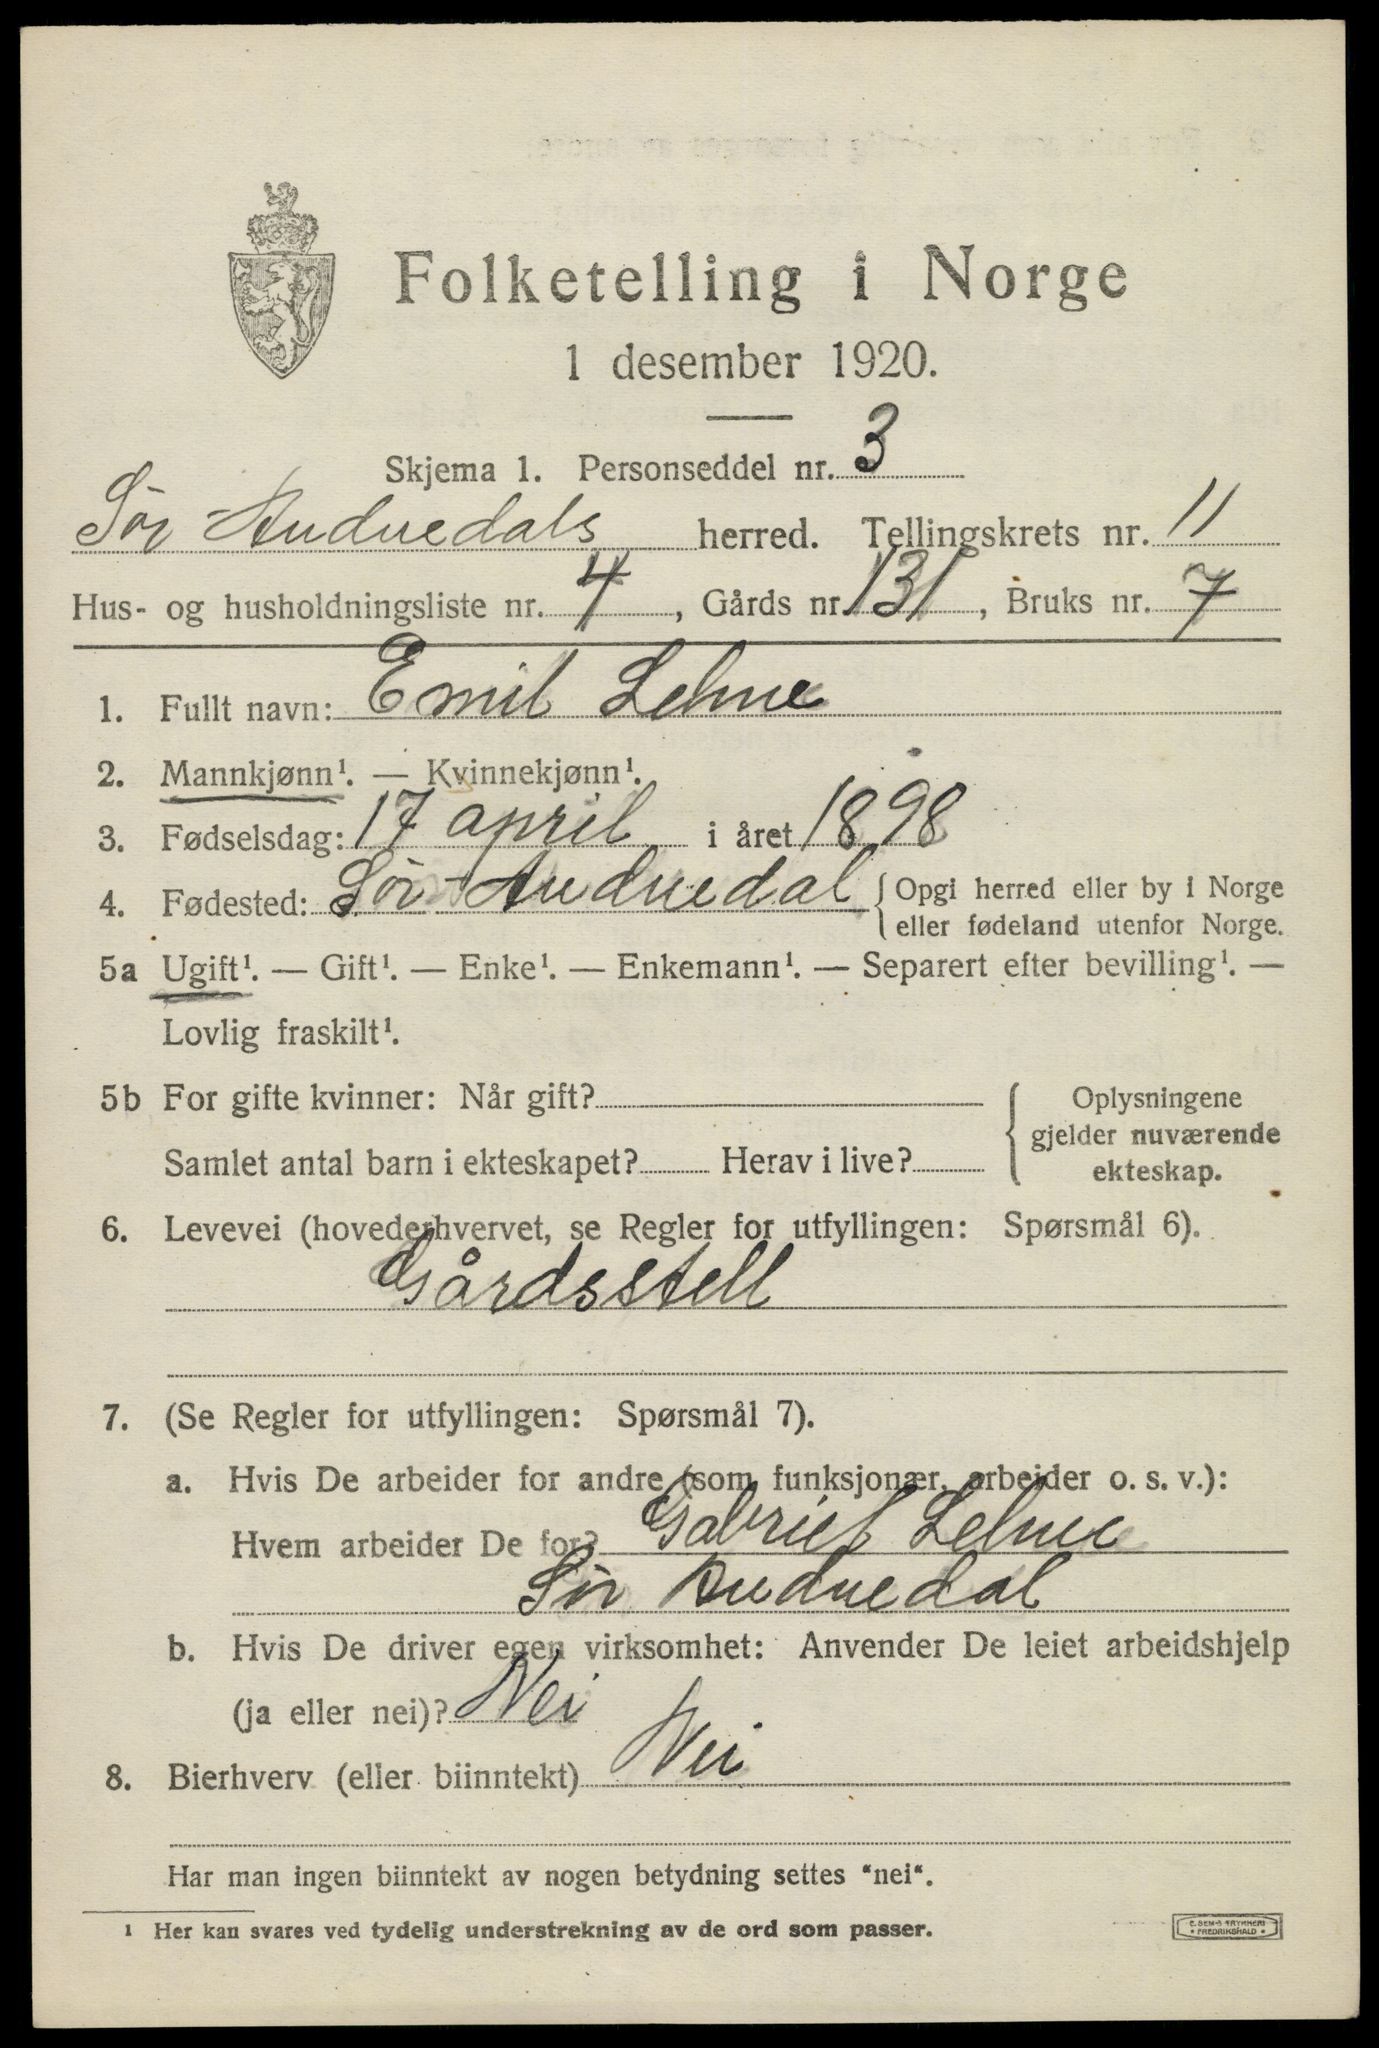 Folketelling i Norge
1 desember 1920.
Skjema 1. Personseddel nr. 3
Sør-Audnedals herred. Tellingskrets nr. 11
Hus- og husholdningsliste nr. 4, Gårds nr. 131, Bruks nr. 7
1. Fullt navn: Emil Lehne
2. Mannkjønn¹. — Kvinnekjønn¹.
3. Fødselsdag: 17 april i året 1898
4. Fødested: Sør-Audnedal { Opgi herred eller by i Norge
eller fødeland utenfor Norge.
5a Ugift¹. — Gift¹. — Enke¹. — Enkemann¹. — Separert efter bevilling¹. —
Lovlig fraskilt¹.
5b For gifte kvinner: Når gift? { Oplysningene
gjelder nuværende
Samlet antal barn i ekteskapet? Herav i live? ekteskap.
6. Levevei (hovederhvervet, se Regler for utfyllingen: Spørsmål 6).
Gårdsstell
7. (Se Regler for utfyllingen: Spørsmål 7).
a. Hvis De arbeider for andre (som funksjonær, arbeider o. s. v.):
Hvem arbeider De for? Gabriel Lehne
Sør Audnedal
b. Hvis De driver egen virksomhet: Anvender De leiet arbeidshjelp
(ja eller nei)? Nei
8. Bierhverv (eller biinntekt) Nei
Har man ingen biinntekt av nogen betydning settes "nei".
¹ Her kan svares ved tydelig understrekning av de ord som passer.
E. SEM-S TRYKKERI
• FREDRIKSHALD •